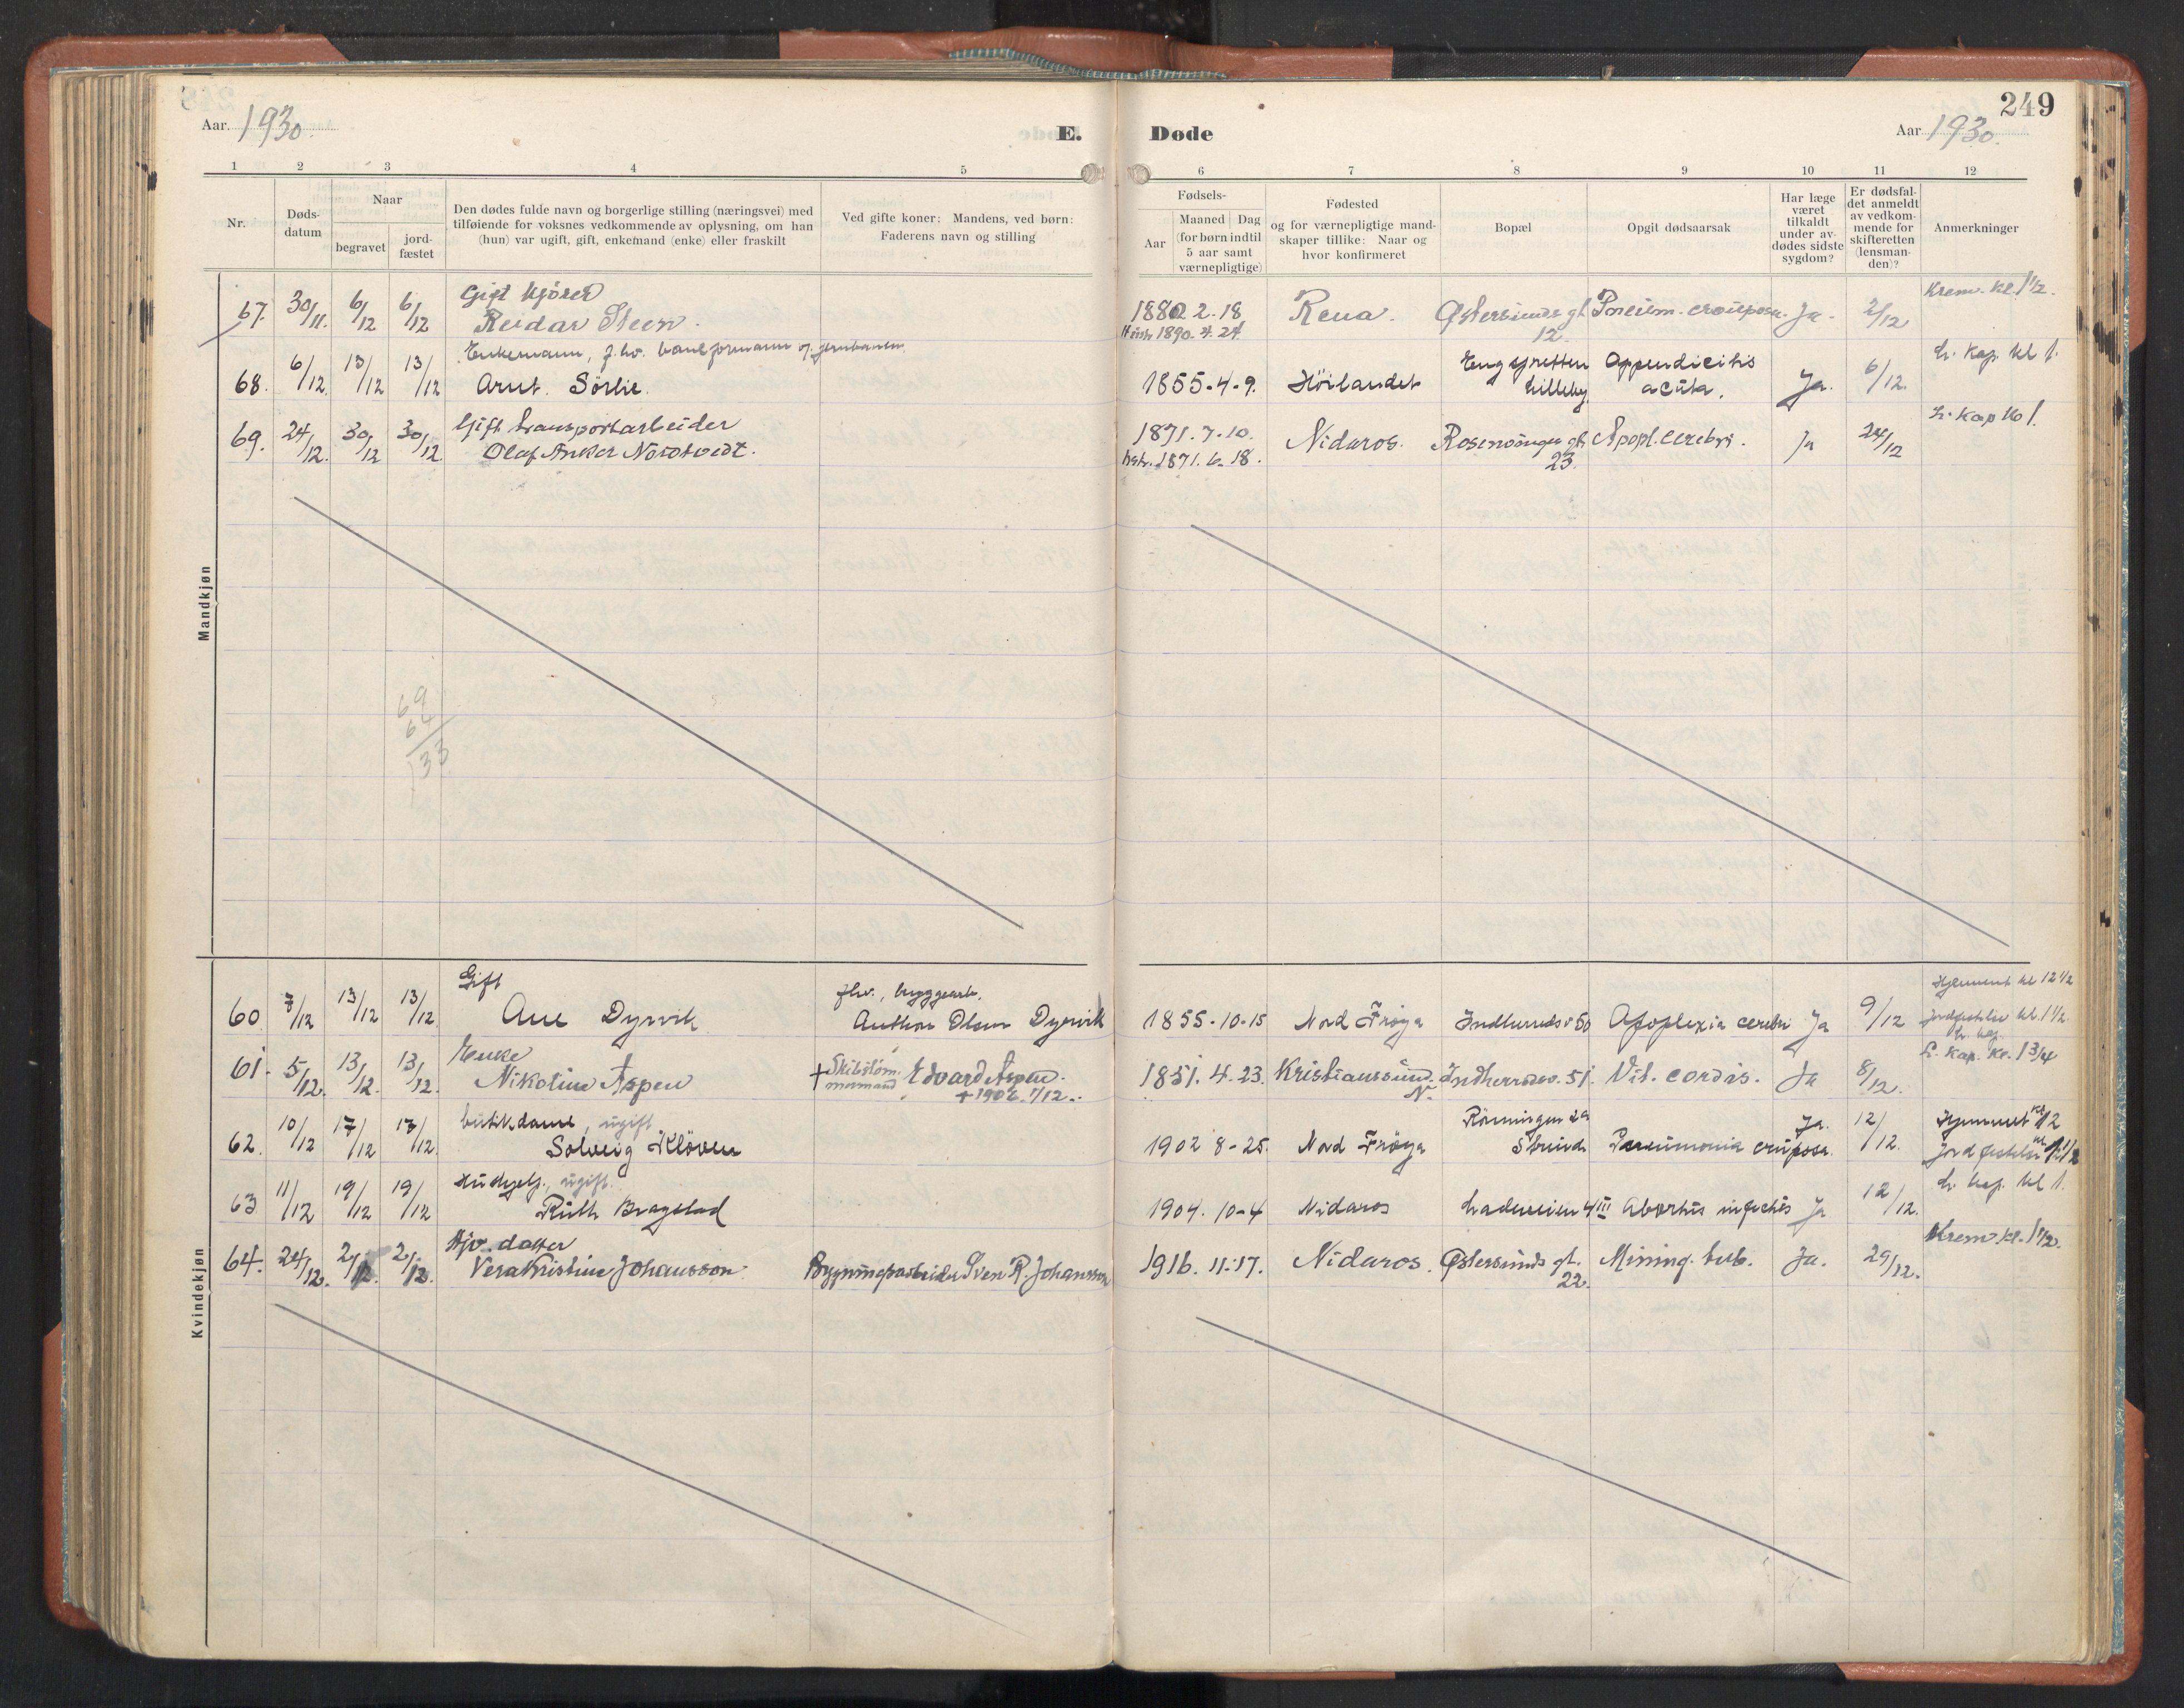 249
Aar. 1930.
E. Døde
Aar 1930.
1 2 3 4 5 6 7 8 9 10 11 12
Nr.
Døds-
datum
Naar
begravet
jord-
fæstet
Den dødes fulde navn og borgerlige stilling (næringsvei) med
tilføiende for voksnes vedkommende av oplysning, om han
(hun) var ugift, gift, enkemand (enke) eller fraskilt
Ved gifte koner: Mandens, ved børn:
Faderens navn og stilling
Fødsels-
Aar
Maaned Dag
(for børn indtil
5 aar samt
værnepligtige)
Fødested
og for værnepligtige mand-
skaper tillike: Naar og
hvor konfirmeret
Bopæl
Opgit dødsaarsak
Har læge
været
tilkaldt
under av-
dødes sidste
sygdom?
Er dødsfal-
det anmeldt
av vedkom-
mende for
skifteretten
(lensman-
den)?
Anmerkninger
Mandkjøn
Gift kjører Krem. kl. 1 1/2.
67. 30/11. 6/12 6/12 Reidar Steen. 1880 2. 18 Rena. Østersunds gt. Pneum. crouposa. Ja. 2/12
Hustr. 1890. 4. 24. 12.
Enkemann, f.hv. baneformann v. jernbanen. L. Kap. kl 1.
68. 6/12. 13/12 13/12 Arnt. Sörlie. 1855-4-9. Höilandet Engsyretten Appendicitis Ja. 6/12.
Lilleby. acuta.
Gift transportarbeider L. Kap kl 1.
69. 24/12. 30/12 30/12. Olaf Anker Nordtvedt. 1871. 7. 10. Nidaros. Rosenborgs gt. Apopl. cerebri. Ja 24/12
hustr. 1871. 6. 18. 23.
69
64
133
Kvindekjøn
Gift f.hv. bryggearb. Hjemmet kl 12 1/2
60 7/12 13/12 13/12. Ane Dyrvik Anthon Olsen Dyrvik 1855-10-15 Nord Fröya Indherredsv 50 Apoplexia cerebri Ja 9/12 Jordfestelse kl. 1 1/2.
L. kap.
Enke L. Kap. kl. 1 3/4
61. 5/12. 13/12. 13/12. Nikoline Aspen + Skibstöm-
mermand Edvard Aspen. 1851. 4. 23. Kristianssund. N. Indherredsv. 51. Vit. cordis. Ja 8/12.
+ 1902. 7/12.
butikdame, ugift Rönningen 2a Hjemmet kl 12
62. 10/12 17/12 17/12. Solveig Klöven 1902 8-25. Nord Fröya Strinda Pneumonia cruposa. Ja. 12/12. Jordfestelse kl 1 1/2
Hushjelp., ugift. L. kap. kl 1.
63 11/12 19/12 19/12 Ruth Bragstad 1904. 10-4 Nidaros Ladeveien 4 III Abortus infectis Ja 12/12.
Hjv. datter Krem. kl. 1 1/2.
64. 24/12. 2/12. 2/12. Vera Kristine Johansson. Bygningsarbeider Sven R. Johansson 1916. 11.-17. Nidaros. Østersunds gt. Mining. tub. Ja. 29/12.
22.